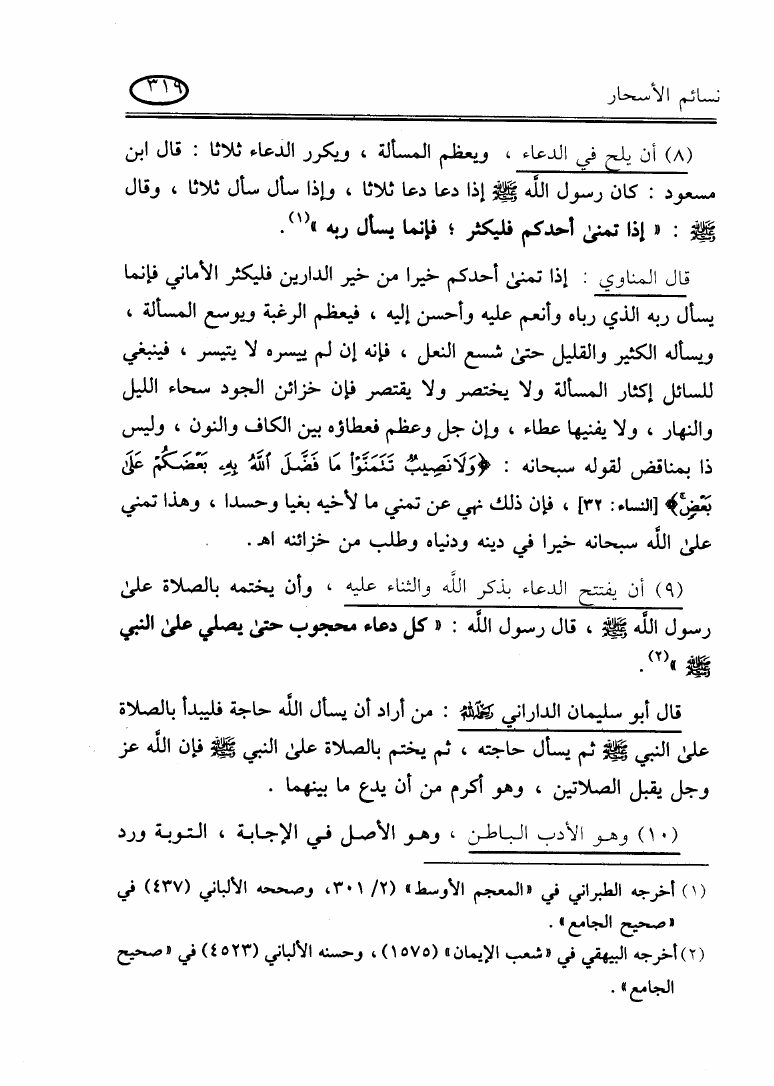 نسائم الأسحار
٣١٩
(٨) أن يلح في الدعاء ، ويعظم المسألة ، ويكرر الدعاء ثلاثا : قال ابن
مسعود : كان رسول اللَّه ﷺ إذا دعا دعا ثلاثا ، وإذا سأل سأل ثلاثا ، وقال
ﷺ : « إذا تمنىٰ أحدكم فليكثر ؛ فإنما يسأل ربه »(١).
قال المناوي : إذا تمنىٰ أحدكم خيرا من خير الدارين فليكثر الأماني فإنما
يسأل ربه الذي رباه وأنعم عليه وأحسن إليه ، فيعظم الرغبة ويوسع المسألة ،
ويسأله الكثير والقليل حتىٰ شسع النعل ، فإنه إن لم ييسره لا يتيسر ، فينبغي
للسائل إكثار المسألة ولا يختصر ولا يقتصر فإن خزائن الجود سحاء الليل
والنهار ، ولا يفنيها عطاء ، وإن جل وعظم فعطاؤه بين الكاف والنون ، وليس
ذا بمناقض لقوله سبحانه : ﴿وَلَا نَصِيبٌ تَتَمَنَّوْا مَا فَضَّلَ ٱللَّهُ بِهِۦ بَعْضَكُمْ عَلَىٰ
بَعْضٍۚ﴾ [النساء: ٣٢] ، فإن ذلك نهي عن تمني ما لأخيه بغيا وحسدا ، وهذا تمني
علىٰ اللَّه سبحانه خيرا في دينه ودنياه وطلب من خزائنه اهـ .
(٩) أن يفتتح الدعاء بذكر اللَّه والثناء عليه ، وأن يختمه بالصلاة علىٰ
رسول اللَّه ﷺ ، قال رسول اللَّه : « كل دعاء محجوب حتىٰ يصلي علىٰ النبي
ﷺ »(٢).
قال أبو سليمان الداراني رحمه الله : من أراد أن يسأل اللَّه حاجة فليبدأ بالصلاة
علىٰ النبي ﷺ ثم يسأل حاجته ، ثم يختم بالصلاة علىٰ النبي ﷺ فإن اللَّه عز
وجل يقبل الصلاتين ، وهو أكرم من أن يدع ما بينهما .
(١٠) وهو الأدب الباطن ، وهو الأصل في الإجابة ، التوبة ورد
(١) أخرجه الطبراني في «المعجم الأوسط» (٢/ ٣٠١، وصححه الألباني (٤٣٧) في
«صحيح الجامع» .
(٢) أخرجه البيهقي في «شعب الإيمان» (١٥٧٥) ، وحسنه الألباني (٤٥٢٣) في «صحيح
الجامع» .